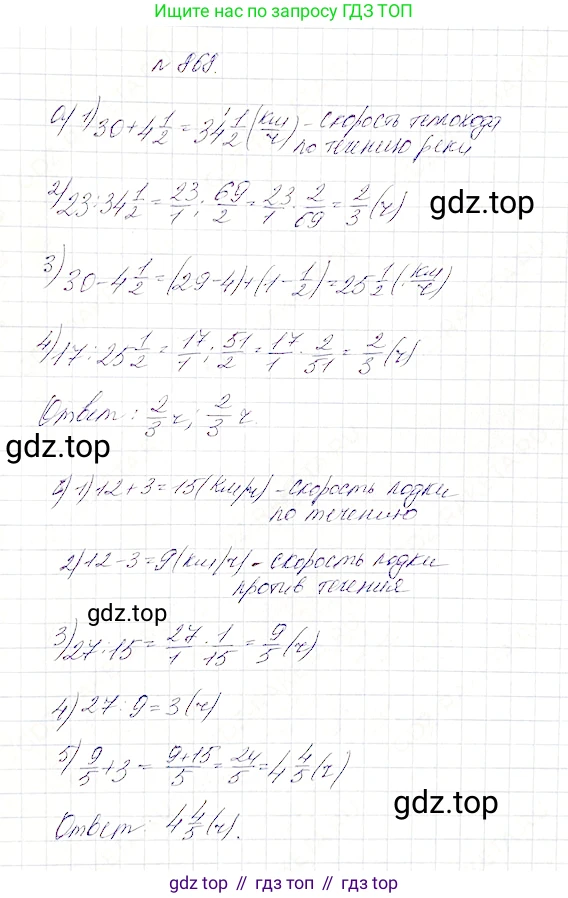 Ищите гдз по запросу ГДЗ ТОП
№ 969.
а) 1) 30 + 4 1/2 = 34 1/2 (км/ч) - скорость теплохода
по течению реки
2) 23 : 34 1/2 = 23/1 : 69/2 = 23/1 · 2/69 = 2/3 (ч)
gdz.top
3) 30 - 4 1/2 = (29 - 4) + (1 - 1/2) = 25 1/2 (км/ч)
4) 17 : 25 1/2 = 17/1 : 51/2 = 17/1 · 2/51 = 2/3 (ч)
Ответ: 2/3 ч; 2/3 ч.
gdz.top
б) 1) 12 + 3 = 15 (км/ч) - скорость лодки
по течению
2) 12 - 3 = 9 (км/ч) - скорость лодки
против течения
gdz.top
3) 27 : 15 = 27/1 · 1/15 = 9/5 (ч)
4) 27 : 9 = 3 (ч)
5) 9/5 + 3 = 9+15/5 = 24/5 = 4 4/5 (ч)
gdz.top
Ответ: 4 4/5 (ч).
gdz топ // гдз топ // гдз.top